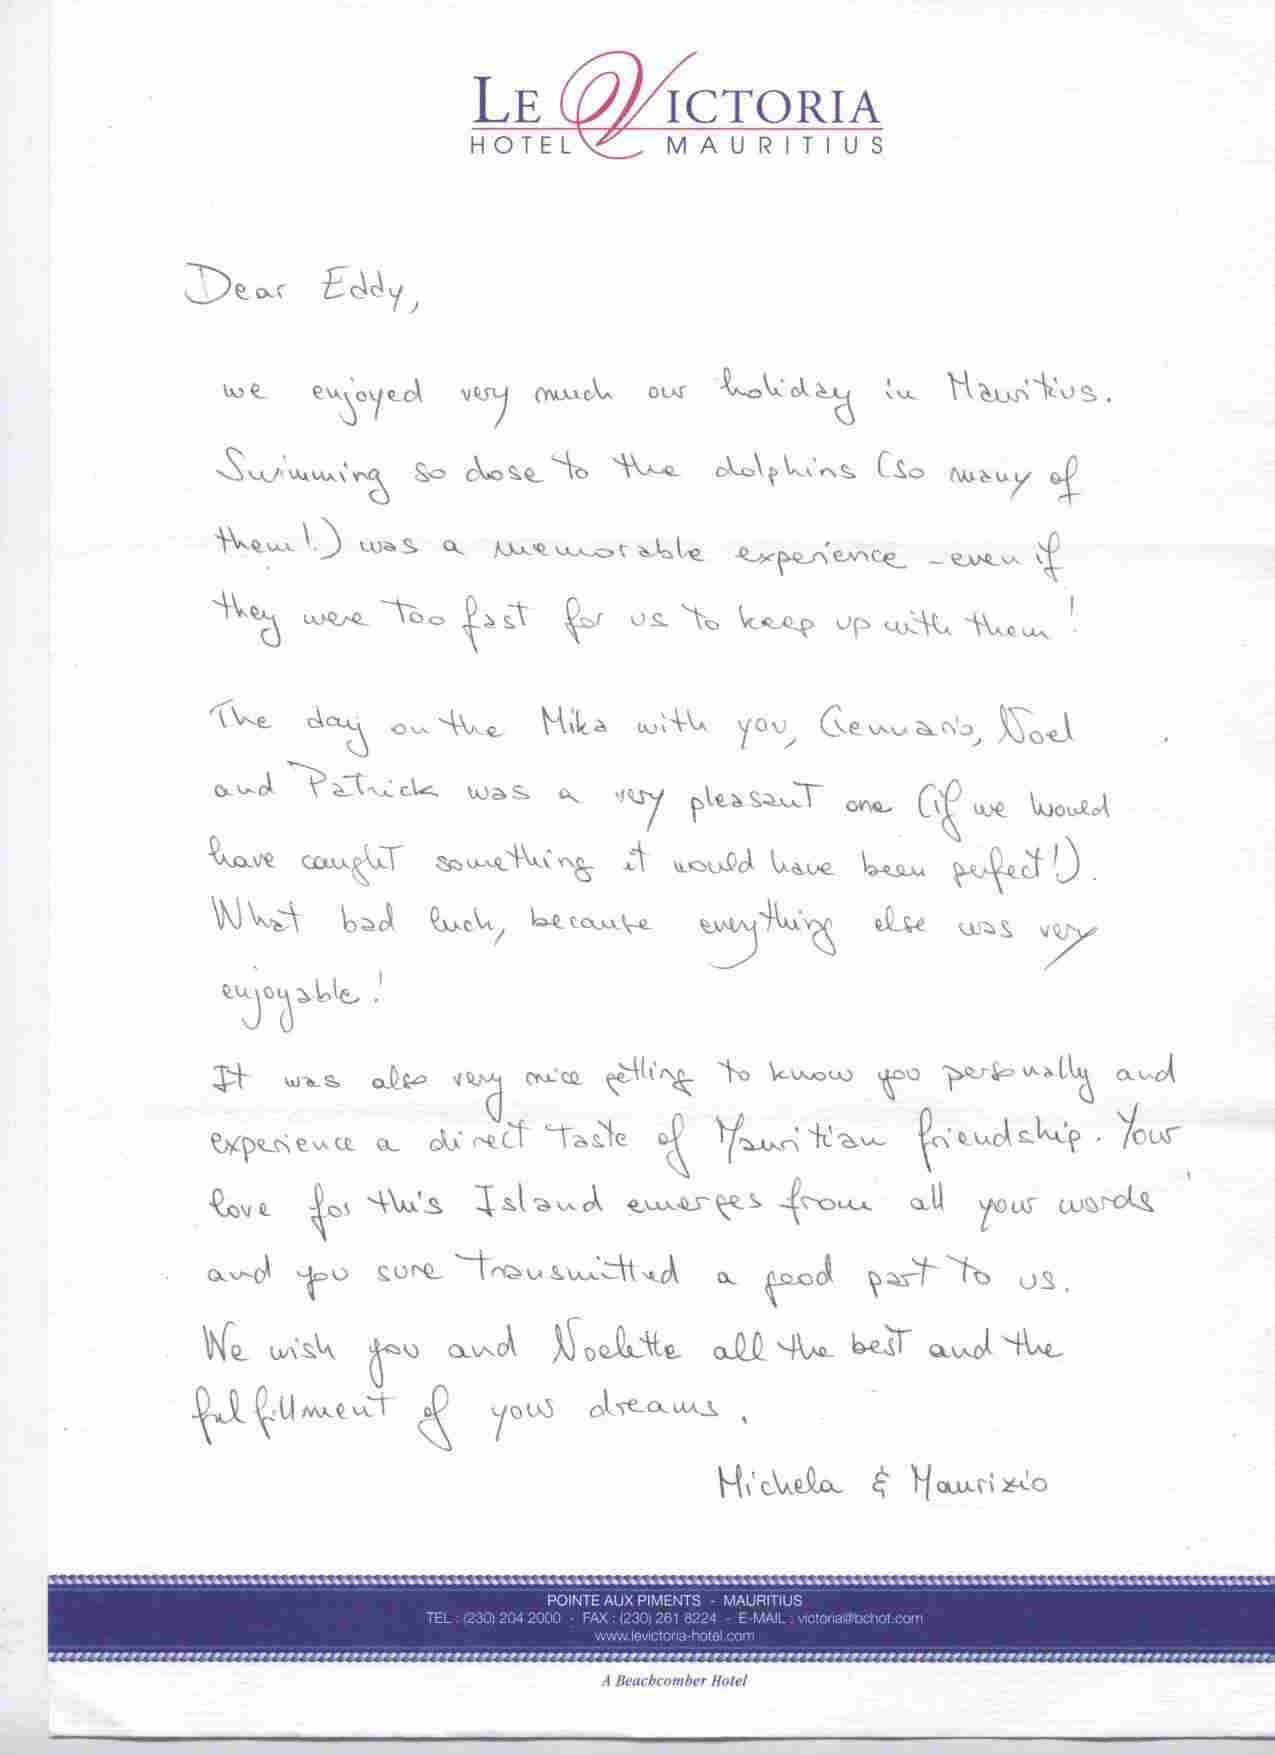 LE VICTORIA
HOTEL MAURITIUS
Dear Eddy,
we enjoyed very much our holiday in Mauritius.
Swimming so close to the dolphins (so many of
them!) was a memorable experience - even if
they were too fast for us to keep up with them!
The day on the Mika with you, Gennaro, Noel
and Patrick was a very pleasant one (if we would
have caught something it would have been perfect!).
What bad luck, because everything else was very
enjoyable!
It was also very nice getting to know you personally and
experience a direct taste of Mauritian friendship. Your
love for this Island emerges from all your words
and you sure transmitted a good part to us.
We wish you and Noelette all the best and the
fulfillment of your dreams.
Michela & Maurizio
POINTE AUX PIMENTS - MAURITIUS
TEL : (230) 204 2000 - FAX : (230) 261 8224 - E-MAIL : victoria@bchot.com
www.levictoria-hotel.com
A Beachcomber Hotel